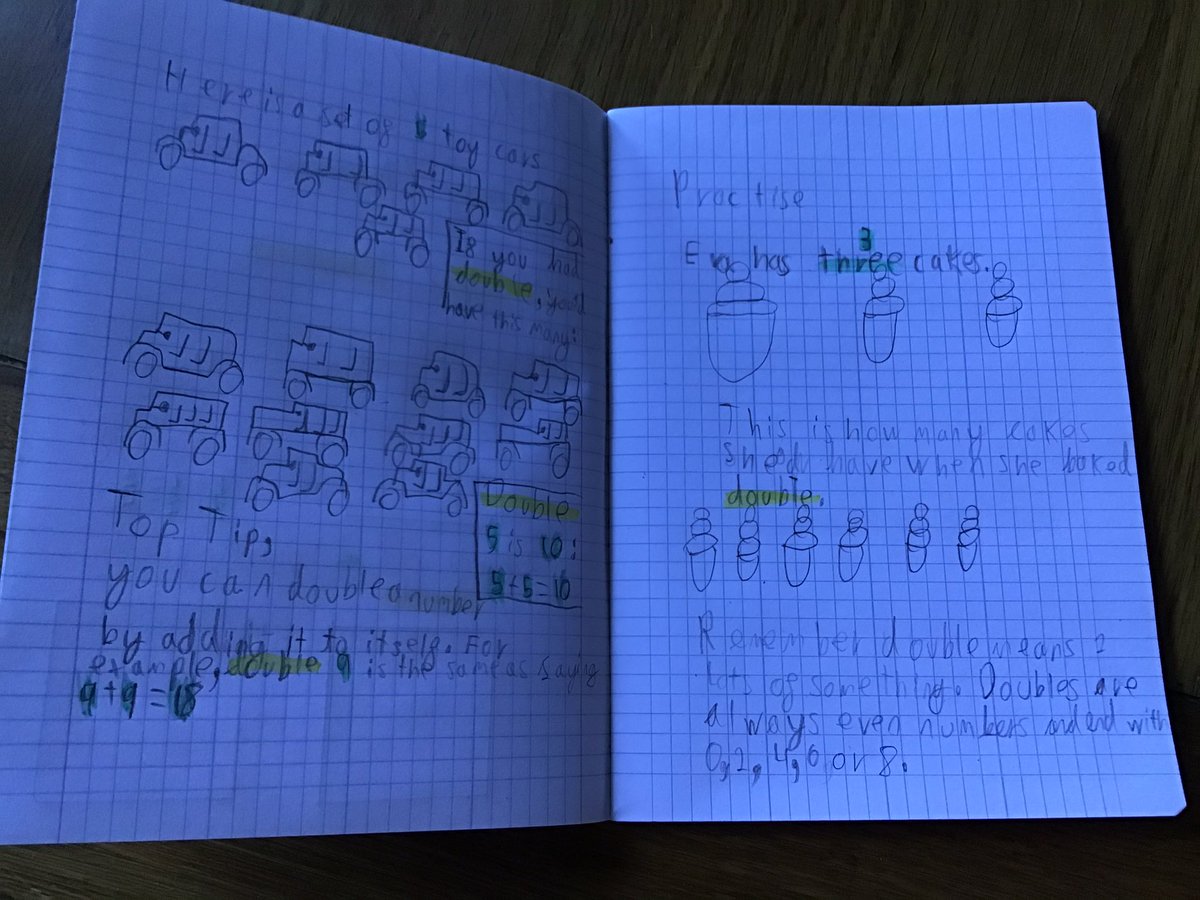 Here is a set of 5 toy cars
If you had
double, you'd
have this many:
Double
5 is 10:
5+5=10
Top Tip,
you can double a number
by adding it to itself. For
example, double 9 is the same as saying
9+9=18
Practise
3
Eva has three cakes.
This is how many cakes
she'd have when she baked
double.
Remember double means 2
lots of something. Doubles are
always even numbers and end with
0,2,4,6 or 8.